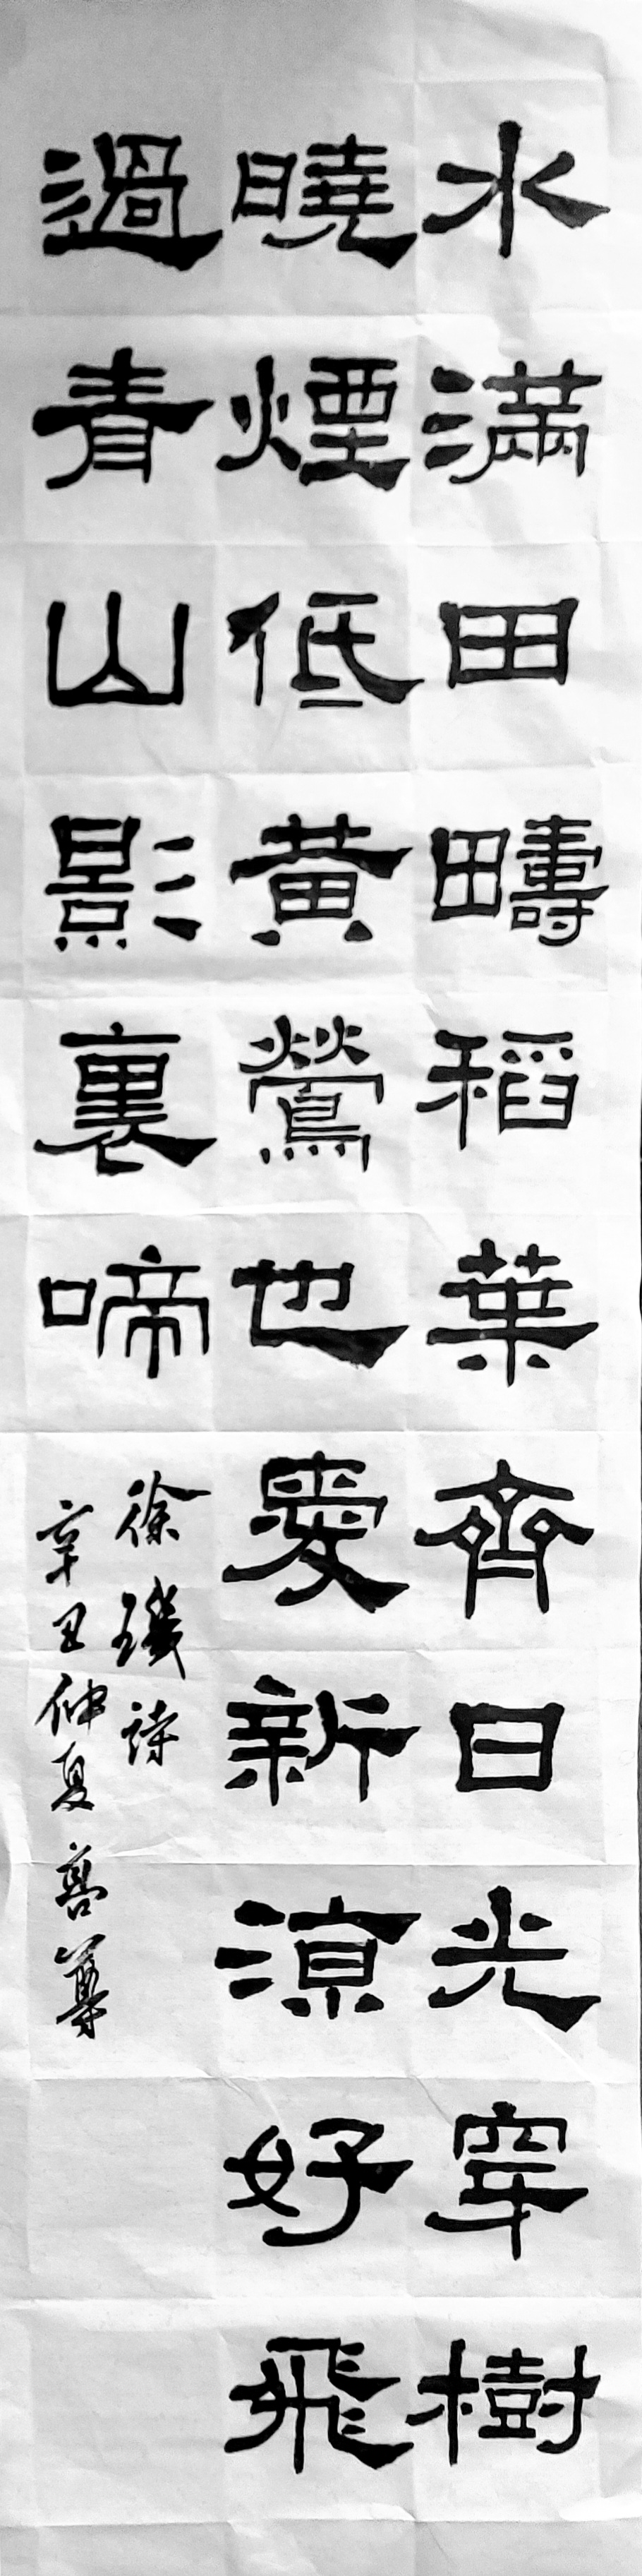 水滿田疇稻葉齊日光穿樹
曉煙低黃鶯也愛新涼好飛
過青山影裏啼
徐璣詩
辛丑仲夏善尊